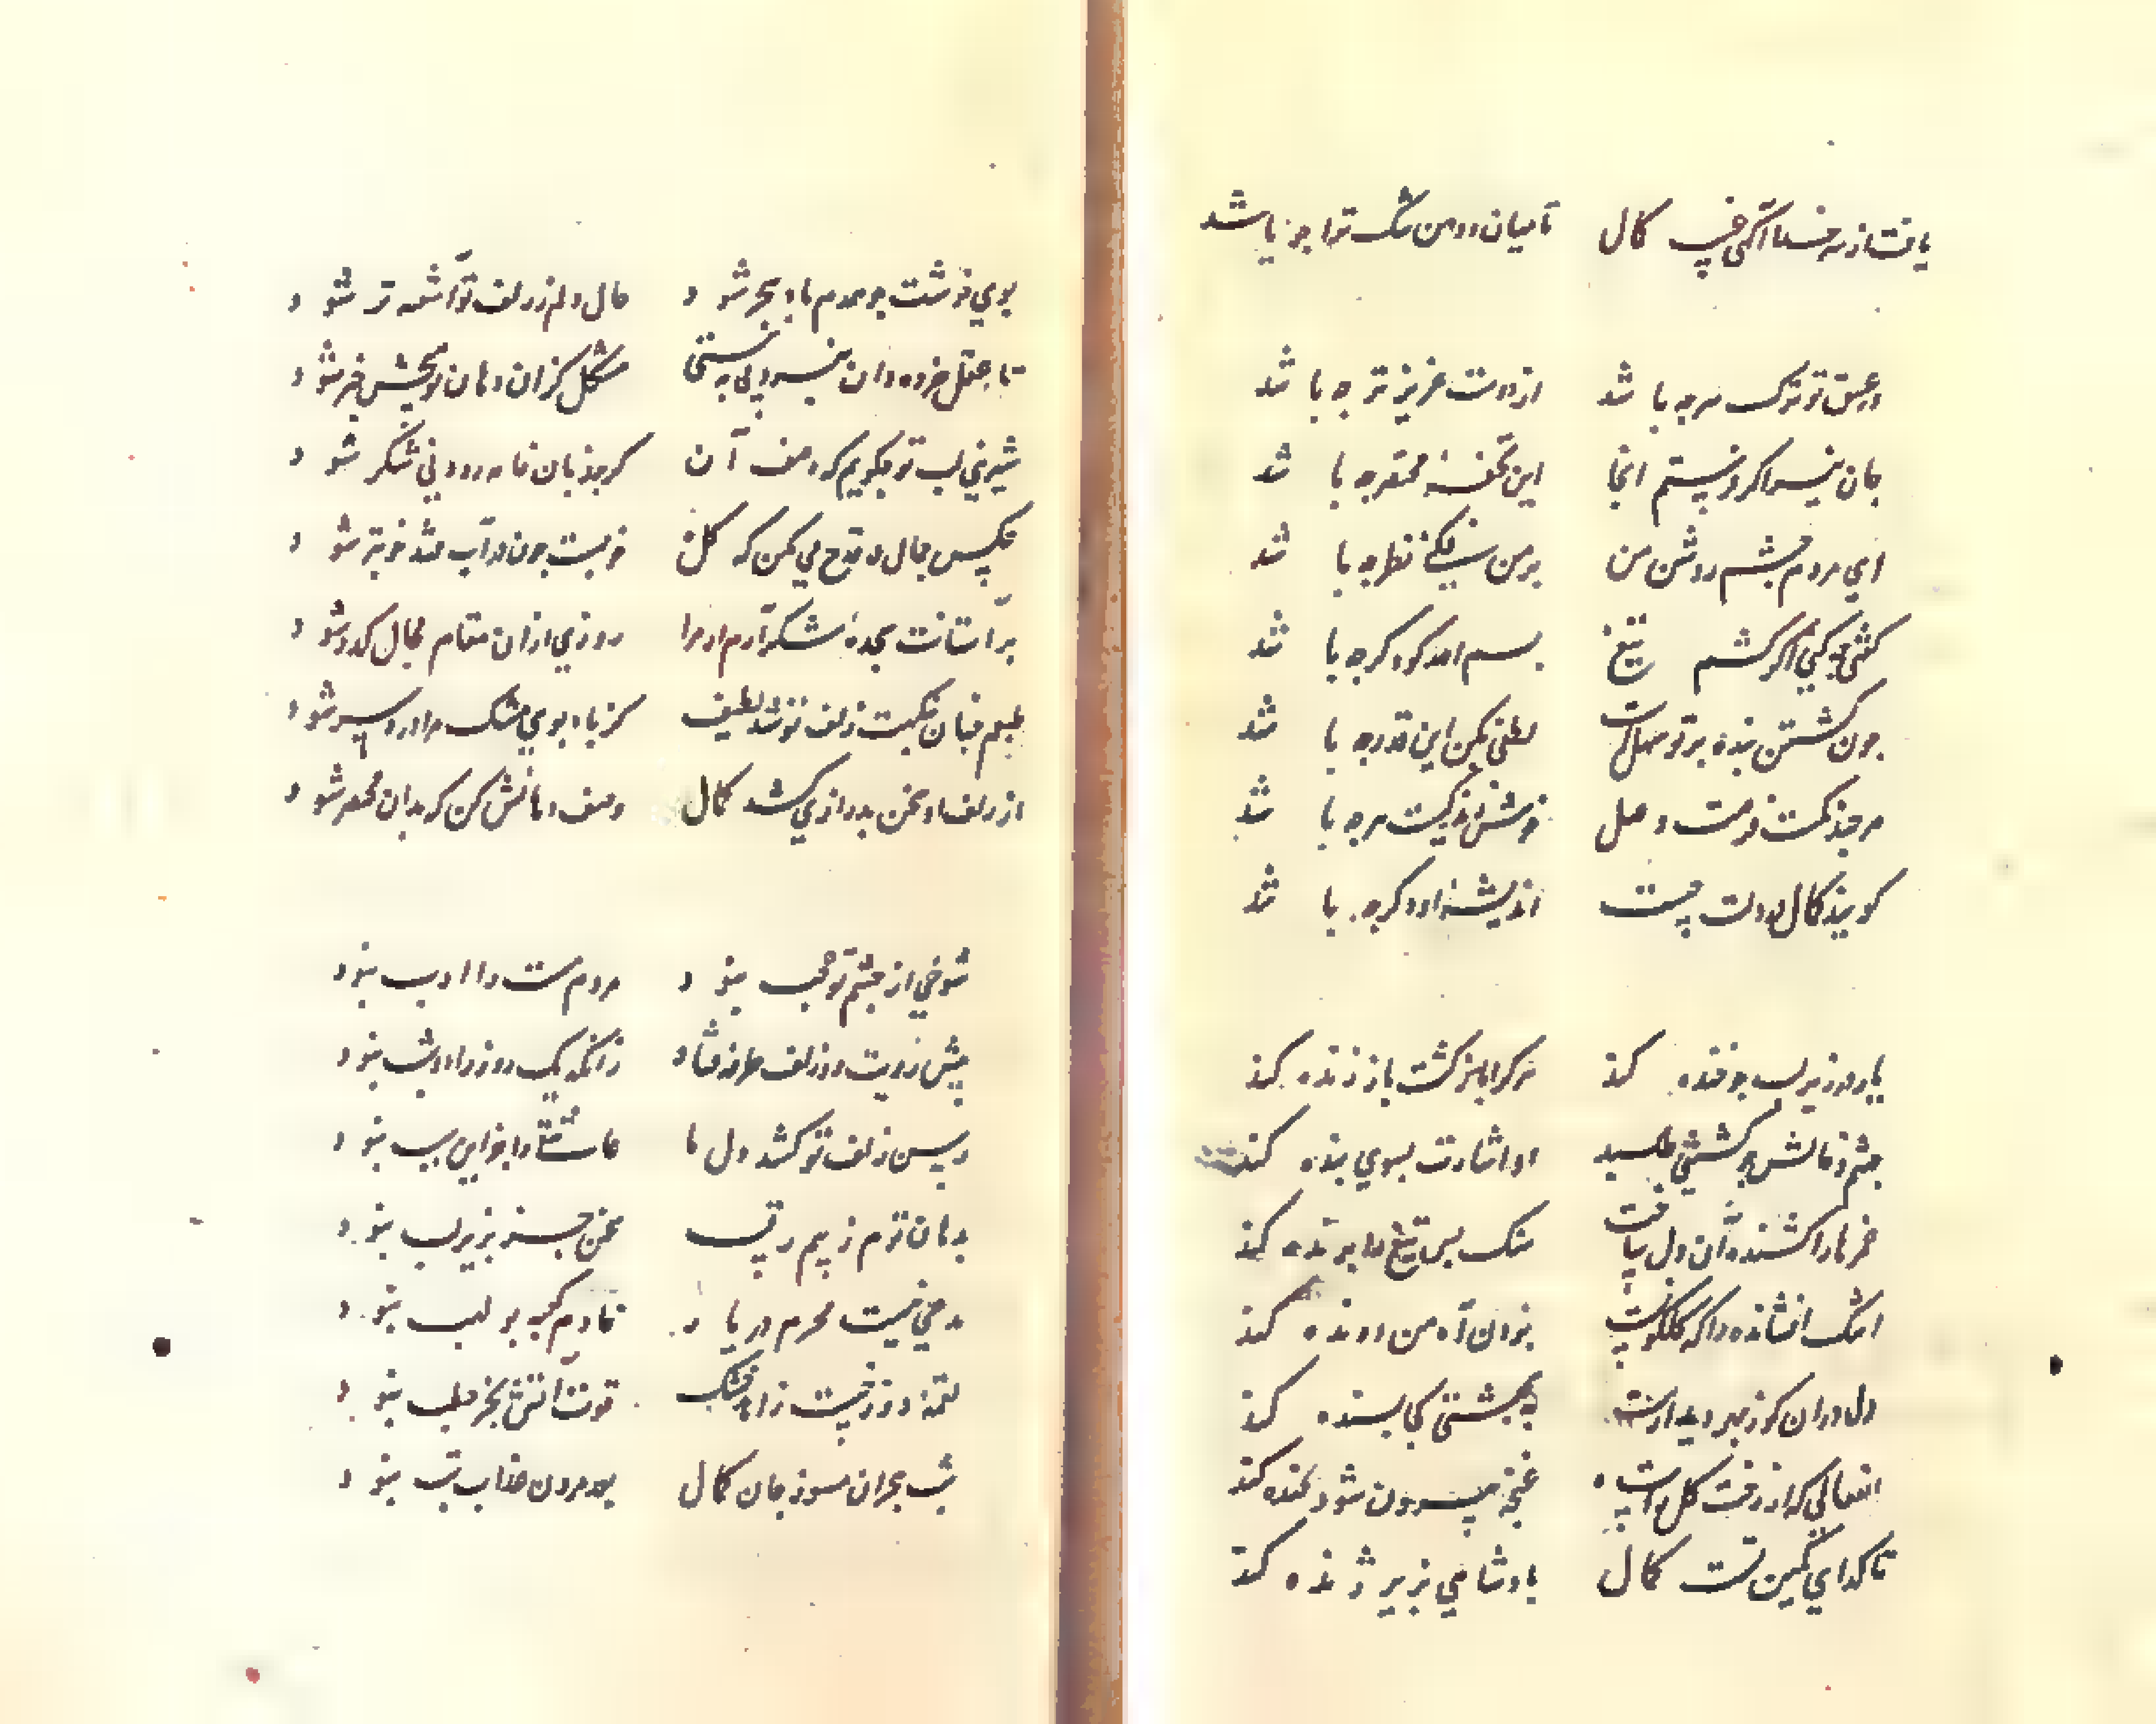 یافت از سر خدا آگهی چنین کمال تا میان و دهن تنگ ترا جویا شد
در عشق تو ترک سر چه باشد از دوست عزیزتر چه باشد
جان نیز اگر فرستم آنجا این تحفه مختصر چه باشد
ای مردم چشم روشن من بر من فکنی نظر چه باشد
گفتی چه کنی اگر کشم تیغ بسم الله کرد اگر چه باشد
چون کشتن بنده بر تو سهلست لطفی بکن این قدر چه باشد
هر چند کمست فرصت وصل خوش زندگیست هر چه باشد
گویند کمال دولتت چیست اندیشه او دگر چه باشد
یار در زیر لب چو خنده کند هر کرا باز کشت باز زنده کند
چشم و خالش چو کشتنی طلبید او اشارت بسوی بنده کند
سنگ پس تیغ را برنده کند
اشک افشانده را که گلگونست بزدان آه من دونده کند
دل در آن کو ز میر دیدارست به بهشتی کی بسنده کند
انفعالی که از رخت گل راست غنچه بیرون شود که خنده کند
تا گدای کمین تست کمال پادشاهی بزیر ژنده کند
بوی خوشت چو همدم باد سحر شود حال دلم ز زلف تو آشفته تر شود
تا عقل خرده دان نبرد پی به نیستی مشکل کز آن دهان تو هیچش خبر شود
شیرینی لب تو بگویم که وصف آن گر بر زبان خامه رود نی شکر شود
عکس جمال در قدح می فکن که گل خوبست چون در آب فتد خوبتر شود
بر آستانت سجده شکر آرم ار مرا روزی از آن مقام مجال گذر شود
طبعم چنان به نکهت زلف تو شد لطیف کز باد بوی مشک مرا درد سر شود
از زلف او سخن بدرازی کشد کمال وصف دهانش کن که بدان مختصر شود
شوخی از چشم تو عجب نبود مردم مست را ادب نبود
پیش رویت دو زلف طرفه فتاد زانکه یک روز را دو شب نبود
رسن زلف تو کشد دل ما عاشقان را جز این سبب نبود
بدهان توم ز بیم رقیب سخن جز بزیر لب نبود
مدعی نیست محرم در یار خادم کعبه بولهب نبود
لقمه دوزخیست زاهد خشک قوت آتش بجز حطب نبود
شب هجران مسوز جان کمال بعد مردن عذاب تب نبود